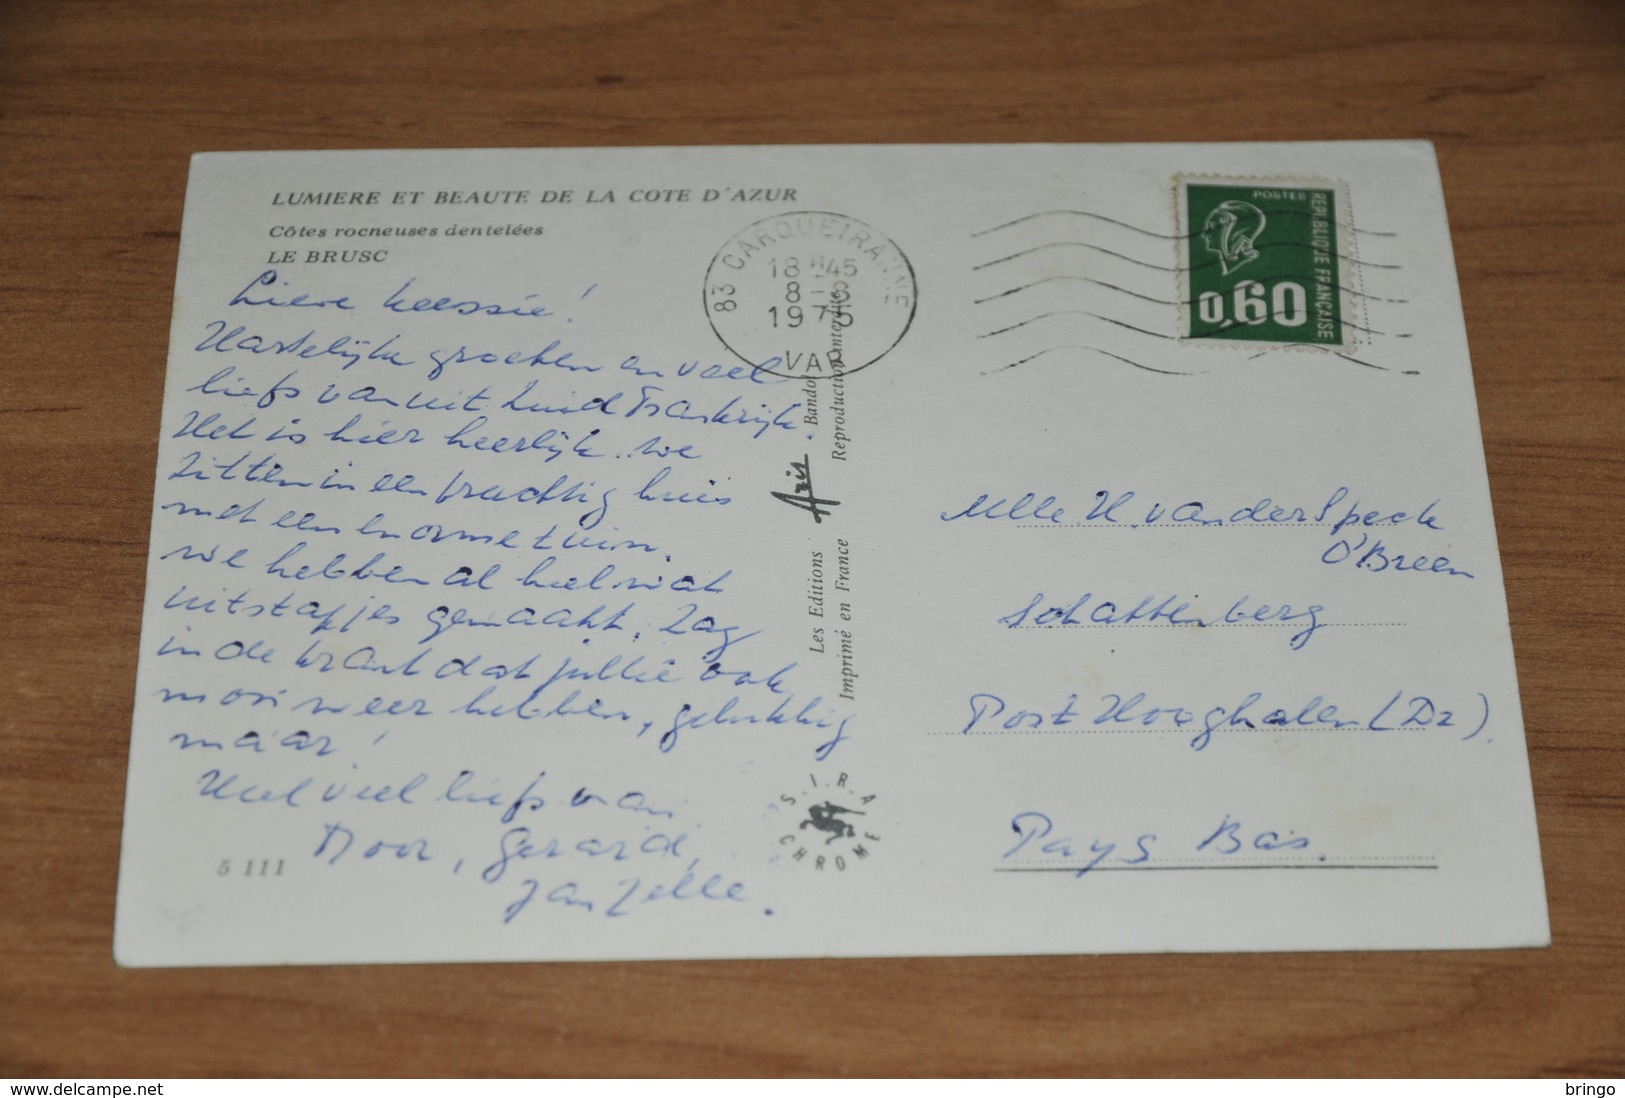 LUMIERE ET BEAUTE DE LA COTE D'AZUR
Côtes rocneuses dentelées
LE BRUSC
Lieve Keessie!
Hartelijke groeten en veel
liefs vanuit Zuid Frankrijk.
Het is hier heerlijk. We
zitten in een prachtig huis
met een enorme tuin.
We hebben al heel wat
uitstapjes gemaakt. Zag
in de krant dat jullie ook
mooi weer hebben, gelukkig
maar!
Heel veel liefs van
Noor, Gerard,
Jan Jelle.
5 111
83 CARQUEIRANNE
18 H45
8 - 8
1975
VAR
Les Editions Aris. Bandol
Imprimé en France Reproduction interdite
S.I.R.A
CHROME
POSTES
REPUBLIQUE FRANÇAISE
0,60
Mlle H. van der Speck
O'Breen
Schattenberg
Post Hooghalen (Dr).
Pays Bas.
delcampe.net
bringo